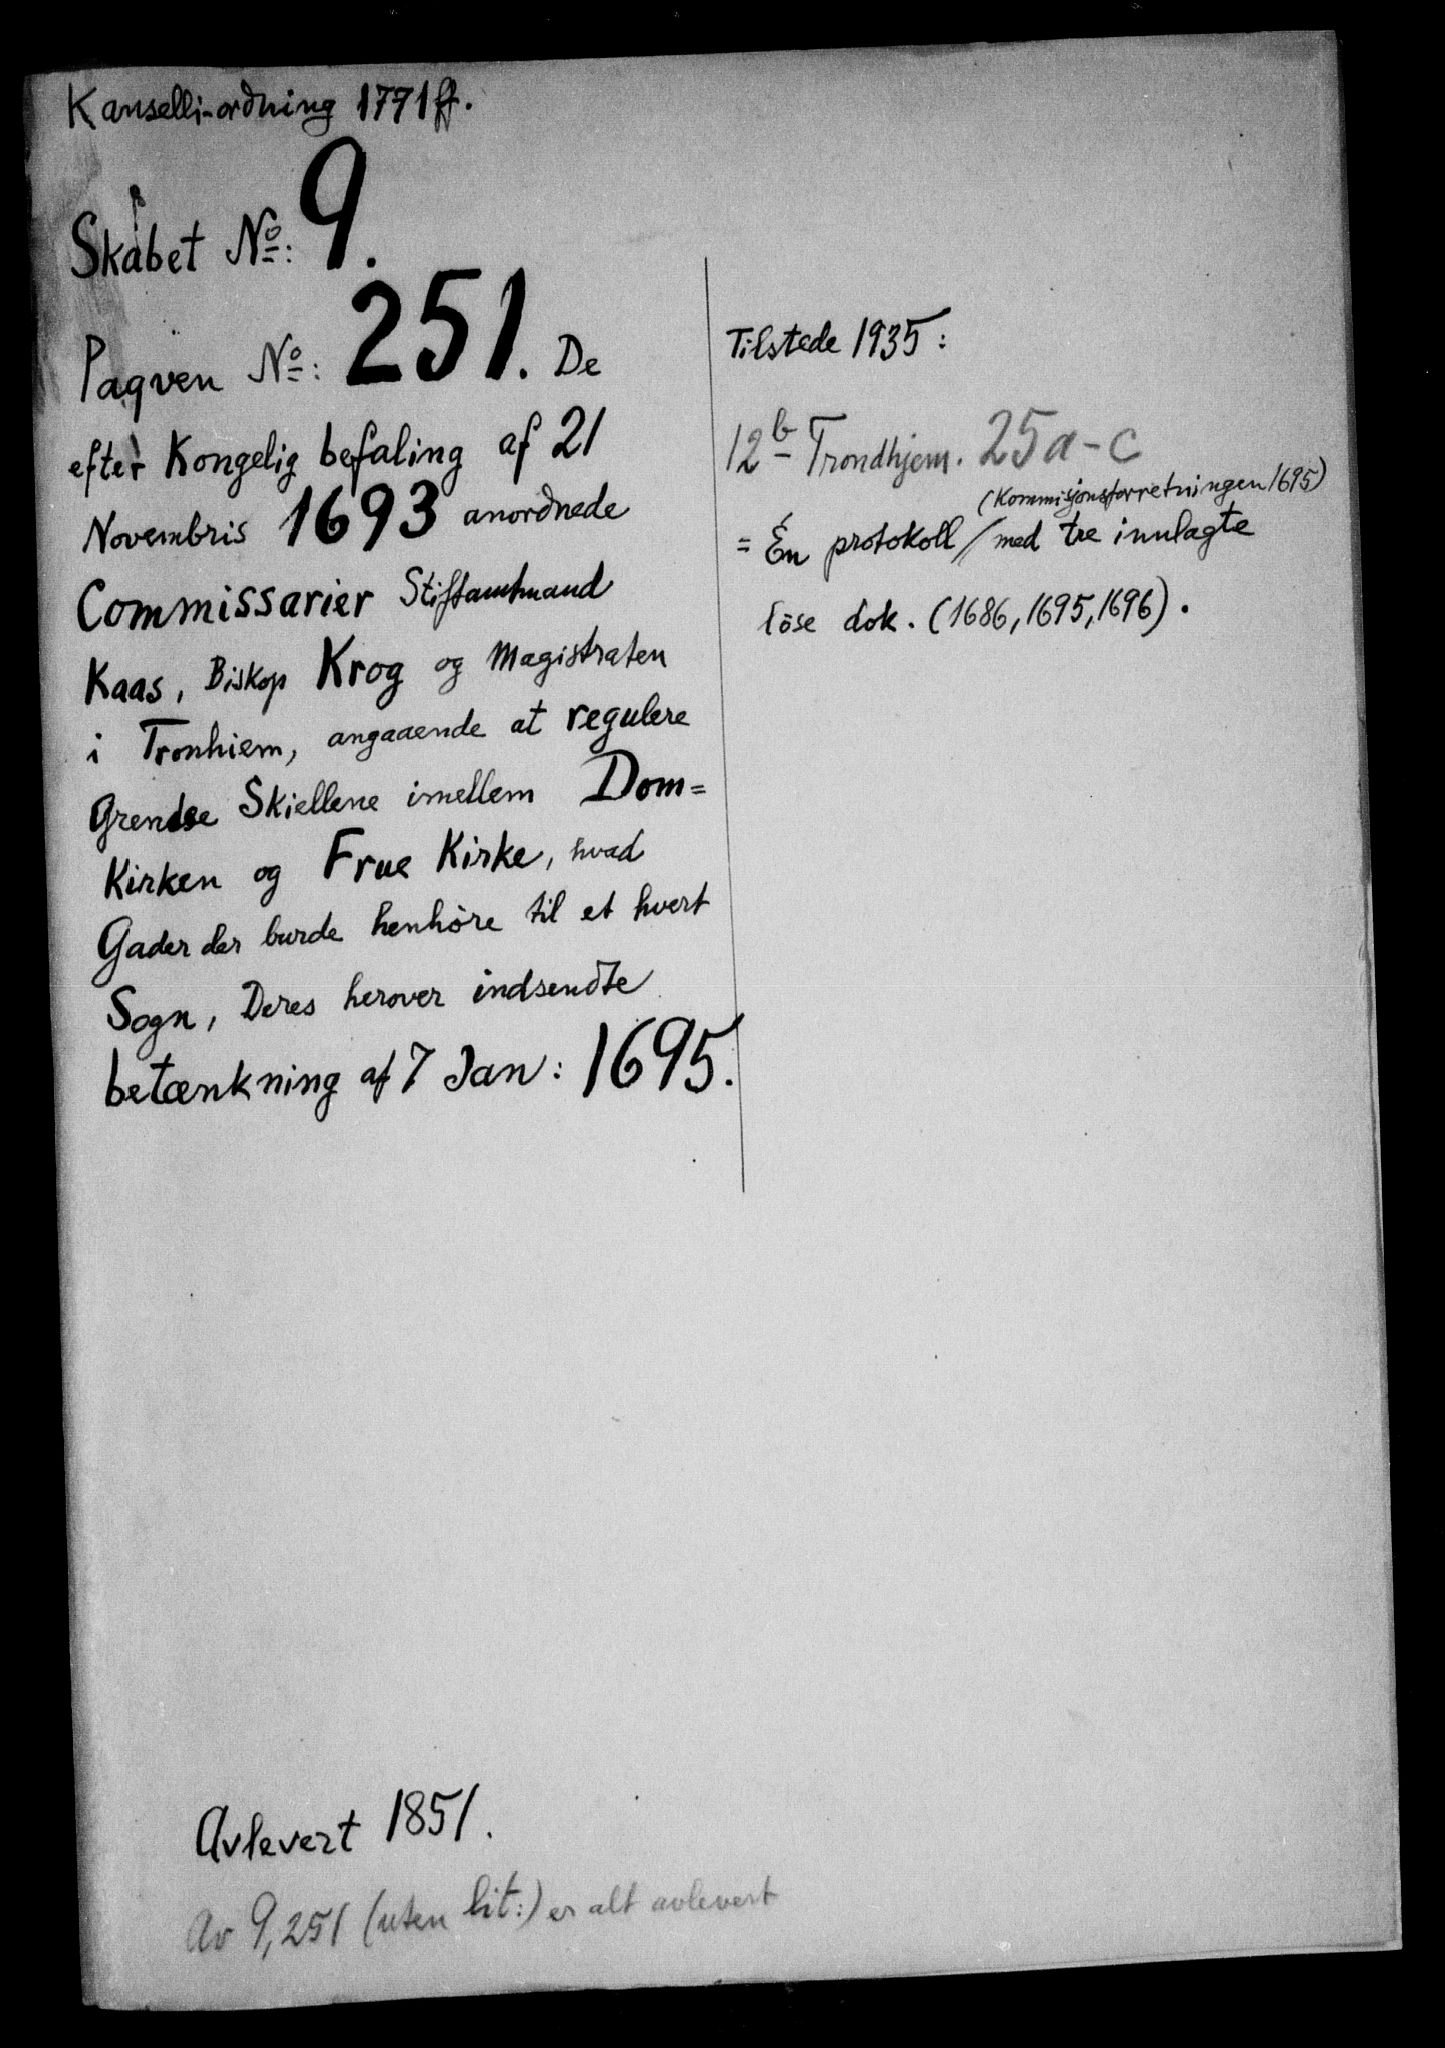 Kanselli-ordning 1771 ff.
Skabet No: 9.
Paqven No: 251. De
efter Kongelig befaling af 21
Novembris 1693 anordnede
Commissarier Stiftamtmand
Kaas, Biskop Krog og Magistraten
i Tronhiem, angaaende at regulere
Grendse Skiellene imellem Dom=
Kirken og Frue Kirke, hvad
Gader der burde henhöre til et hvert
Sogn, Deres herover indsendte
betænkning af 7 Jan: 1695.
Tilstede 1935:
12b Trondhjem. 25a-c
(Kommisjonsforretningen 1695)
= Én protokoll / med tre innlagte
löse dok. (1686, 1695, 1696).
Avlevert 1851.
Av 9,251 (uten lit:) er alt avlevert